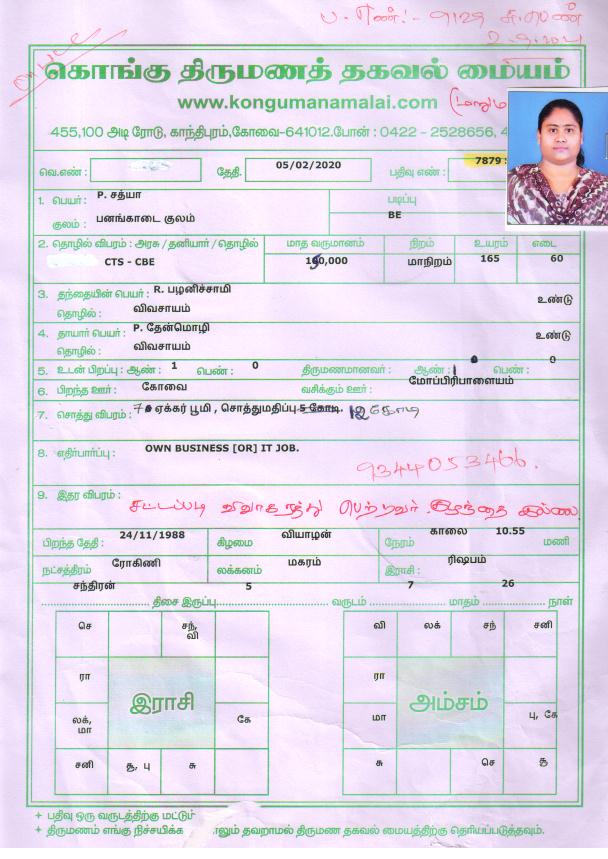 ப. எண்:- 9129 சு.பெண்
2.9.2021
கொங்கு திருமணத் தகவல் மையம்
www.kongumanamalai.com
455,100 அடி ரோடு, காந்திபுரம்,கோவை-641012.போன் : 0422 - 2528656, 4
வெ.எண் : தேதி. 05/02/2020 பதிவு எண் : 7879
1. பெயர் : P. சத்யா படிப்பு
குலம் : பனங்காடை குலம் BE
2. தொழில் விபரம் : அரசு / தனியார் / தொழில் மாத வருமானம் நிறம் உயரம் எடை
CTS - CBE 190,000 மாநிறம் 165 60
3. தந்தையின் பெயர் : R. பழனிச்சாமி உண்டு
தொழில் : விவசாயம்
4. தாயார் பெயர் : P. தேன்மொழி உண்டு
தொழில் : விவசாயம்
5. உடன் பிறப்பு : ஆண் : 1 பெண் : 0 திருமணமானவர் : ஆண் : 1 பெண் : 0
6. பிறந்த ஊர் : கோவை வசிக்கும் ஊர் : மோப்பிரிபாளையம்
7. சொத்து விபரம் : 7 ஏக்கர் பூமி , சொத்துமதிப்பு 5 கோடி. 12 கோடி
8. எதிர்பார்ப்பு : OWN BUSINESS [OR] IT JOB.
9344053466.
9. இதர விபரம் : சட்டப்படி விவாகரத்து பெற்றவர். குழந்தை இல்லை
பிறந்த தேதி : 24/11/1988 கிழமை வியாழன் நேரம் காலை 10.55 மணி
நட்சத்திரம் ரோகிணி லக்கனம் மகரம் இராசி : ரிஷபம்
சந்திரன் திசை இருப்பு 5 வருடம் 7 மாதம் 26 நாள்
செ சந், வி
ரா
லக், மா கே
சனி சூ, பு சு
இராசி
வி லக் சந் சனி
ரா
மா பு, கே
சு செ சூ
அம்சம்
+ பதிவு ஒரு வருடத்திற்கு மட்டும்
+ திருமணம் எங்கு நிச்சயிக்க ாலும் தவறாமல் திருமண தகவல் மையத்திற்கு தெரியப்படுத்தவும்.